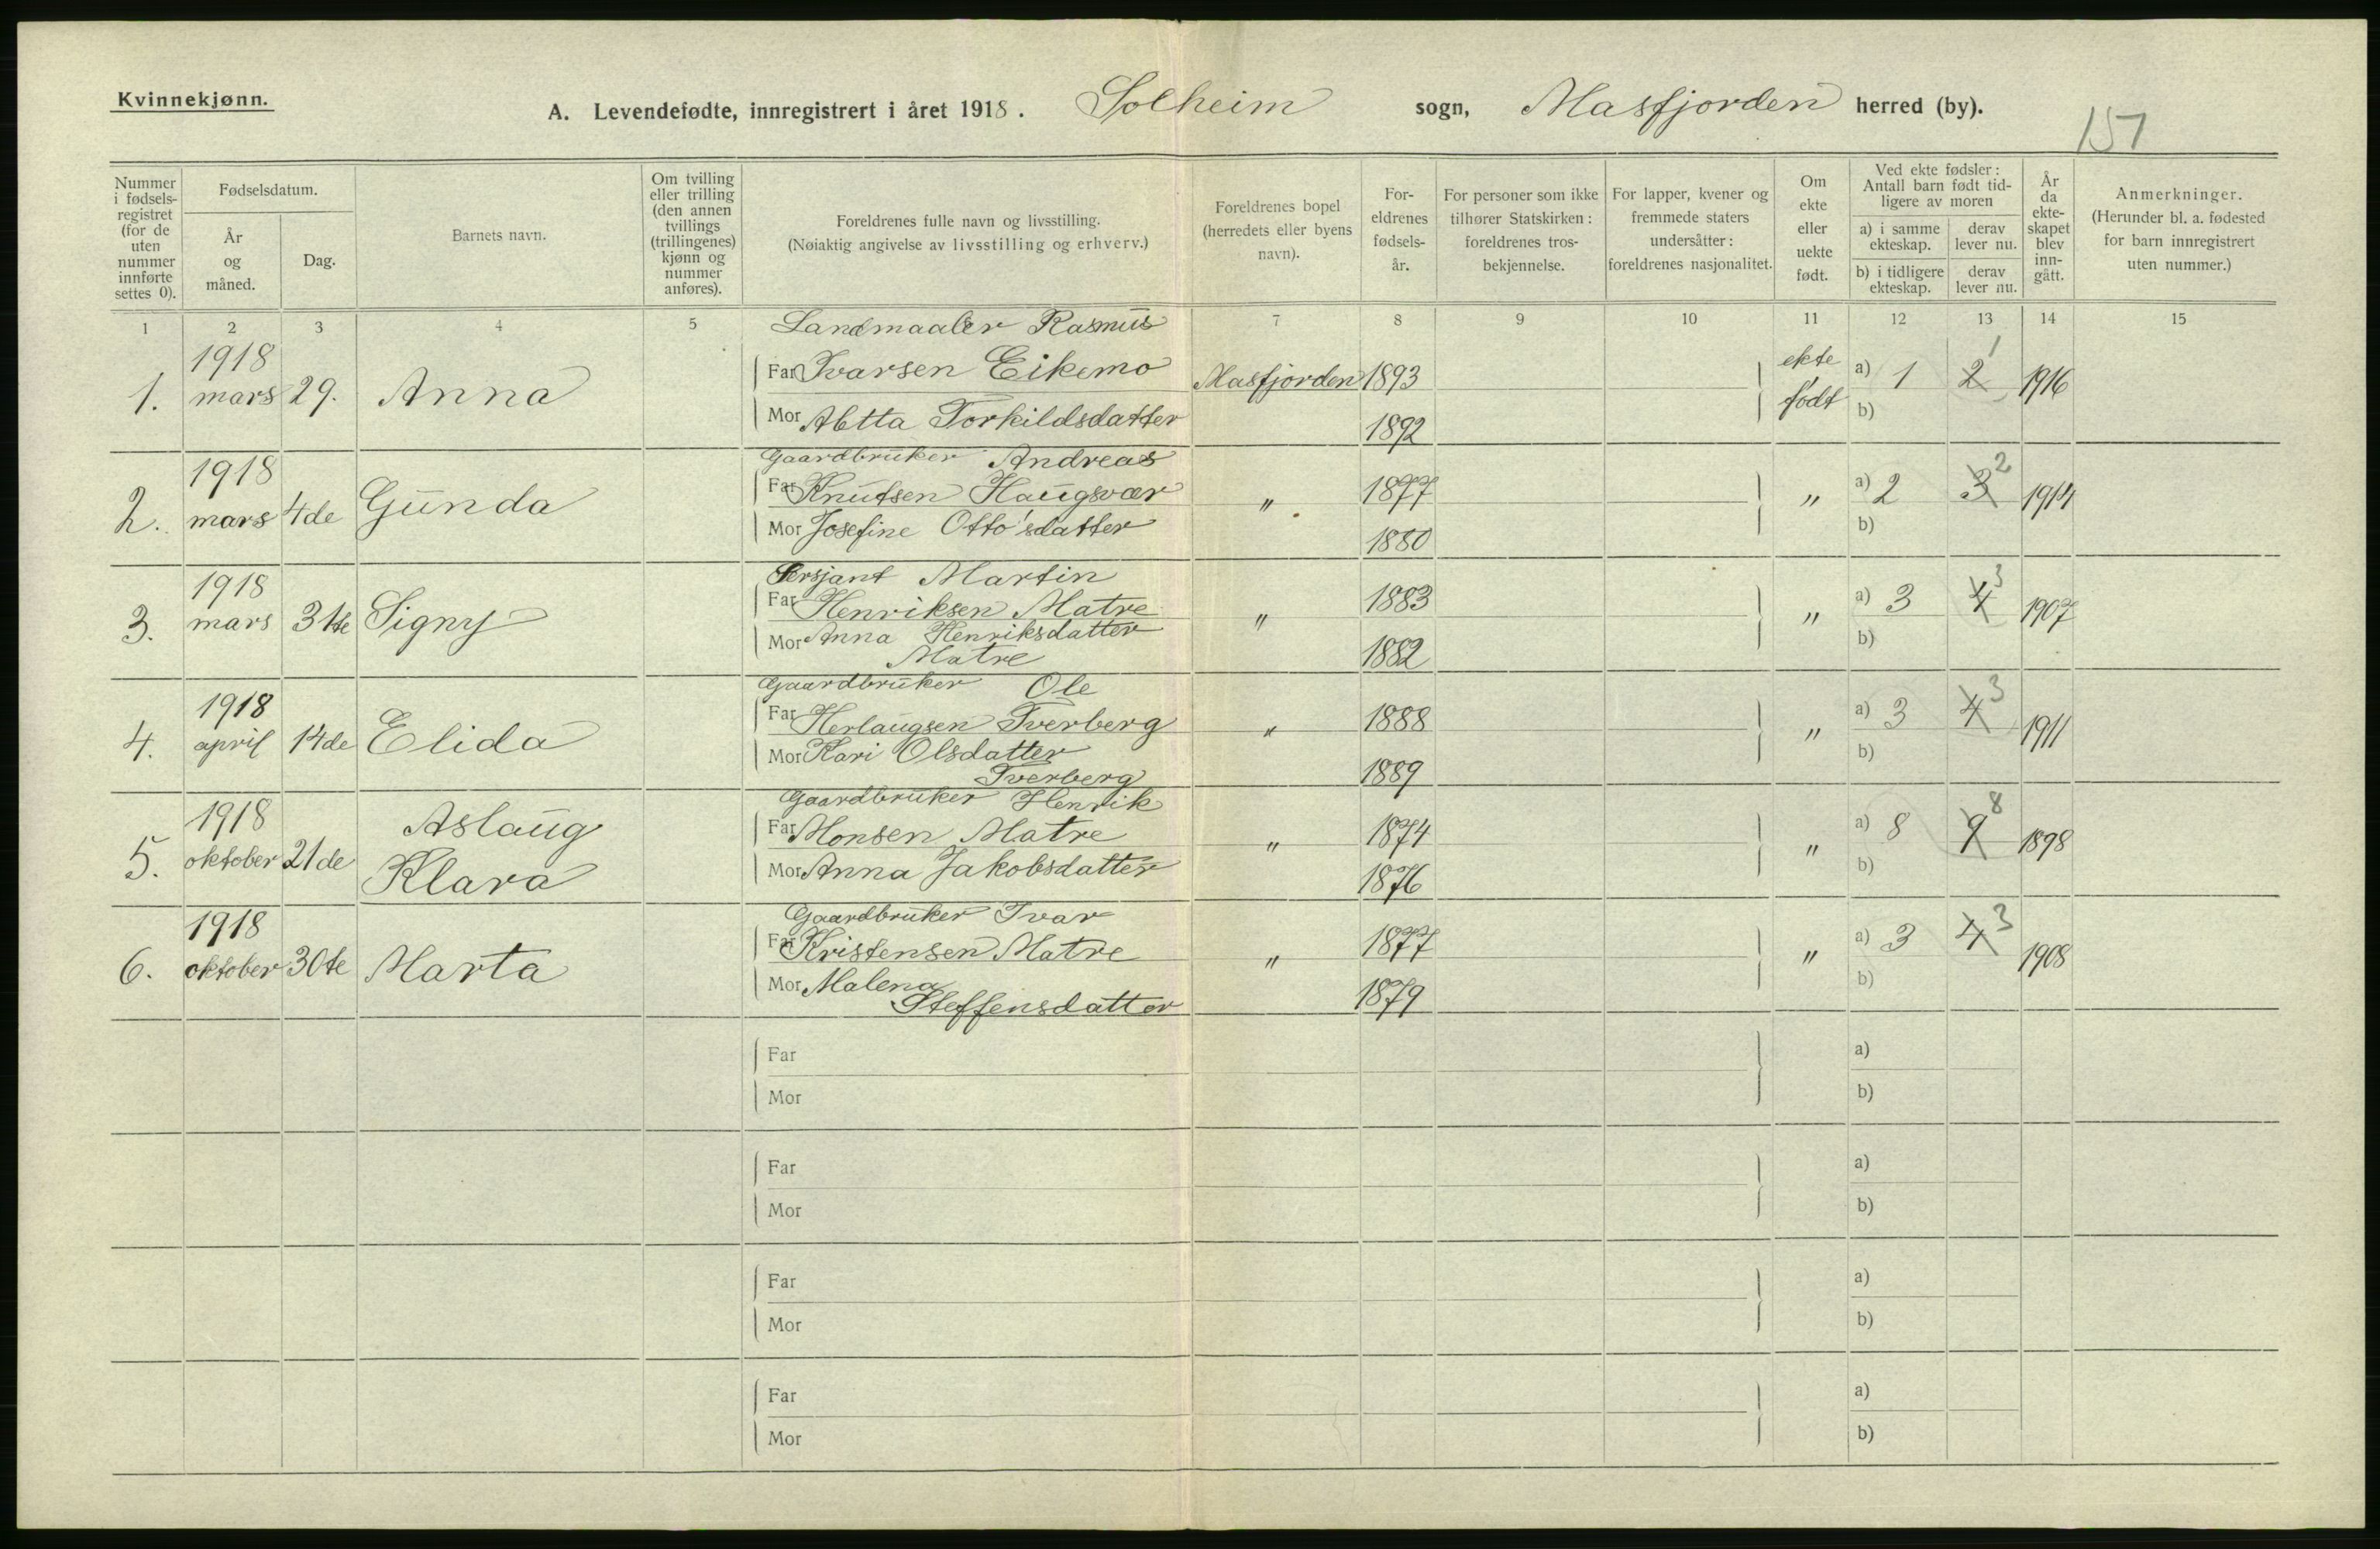 Kvinnekjønn.
A. Levendefødte, innregistrert i året 1918. Solheim sogn, Masfjorden herred (by).
151
Nummer i fødsels-registret (for de uten nummer innførte settes 0).
Fødselsdatum.
År og måned.
Dag.
Barnets navn.
Om tvilling eller trilling (den annen tvillings (trillingenes) kjønn og nummer anføres).
Foreldrenes fulle navn og livsstilling.
(Nøiaktig angivelse av livsstilling og erhverv.)
Foreldrenes bopel (herredets eller byens navn).
For-eldrenes fødsels-år.
For personer som ikke tilhører Statskirken: foreldrenes tros-bekjennelse.
For lapper, kvener og fremmede staters undersåtter: foreldrenes nasjonalitet.
Om ekte eller uekte født.
Ved ekte fødsler: Antall barn født tid-ligere av moren
a) i samme ekteskap.
derav lever nu.
b) i tidligere ekteskap.
derav lever nu.
År da ekte-skapet blev inn-gått.
Anmerkninger.
(Herunder bl. a. fødested for barn innregistrert uten nummer.)
1 2 3 4 5 7 8 9 10 11 12 13 14 15
Landmaaler Rasmus
1. 1918 mars 29. Anna
Far Ivarsen Eikemo Masfjorden 1893 ekte født a) 1 2 1 1916
Mor Abtta Torkildsdatter 1892 b)
Gaardbruker Andreas
2. 1918 mars 4de Gunda
Far Knutsen Haugsvær " 1877 " a) 2 3 2 1914
Mor Josefine Otto'sdatter 1880 b)
Sersjant Martin
3. 1918 mars 31te Signy
Far Henriksen Matre " 1883 " a) 3 4 3 1907
Mor Anna Henriksdatter 1882 b)
Matre
Gaardbruker Ole
4. 1918 april 14de Elida
Far Herlaugsen Tverberg " 1888 " a) 3 4 3 1911
Mor Kari Olsdatter 1889 b)
Tverberg
Gaardbruker Henrik
5. 1918 oktober 21de Aslaug Klara
Far Monsen Matre " 1874 " a) 8 9 8 1898
Mor Anna Jakobsdatter 1876 b)
Gaardbruker Ivar
6. 1918 oktober 30te Marta
Far Kristensen Matre " 1877 " a) 3 4 3 1908
Mor Malena 1879 b)
Steffensdatter
Far a)
Mor b)
Far a)
Mor b)
Far a)
Mor b)
Far a)
Mor b)